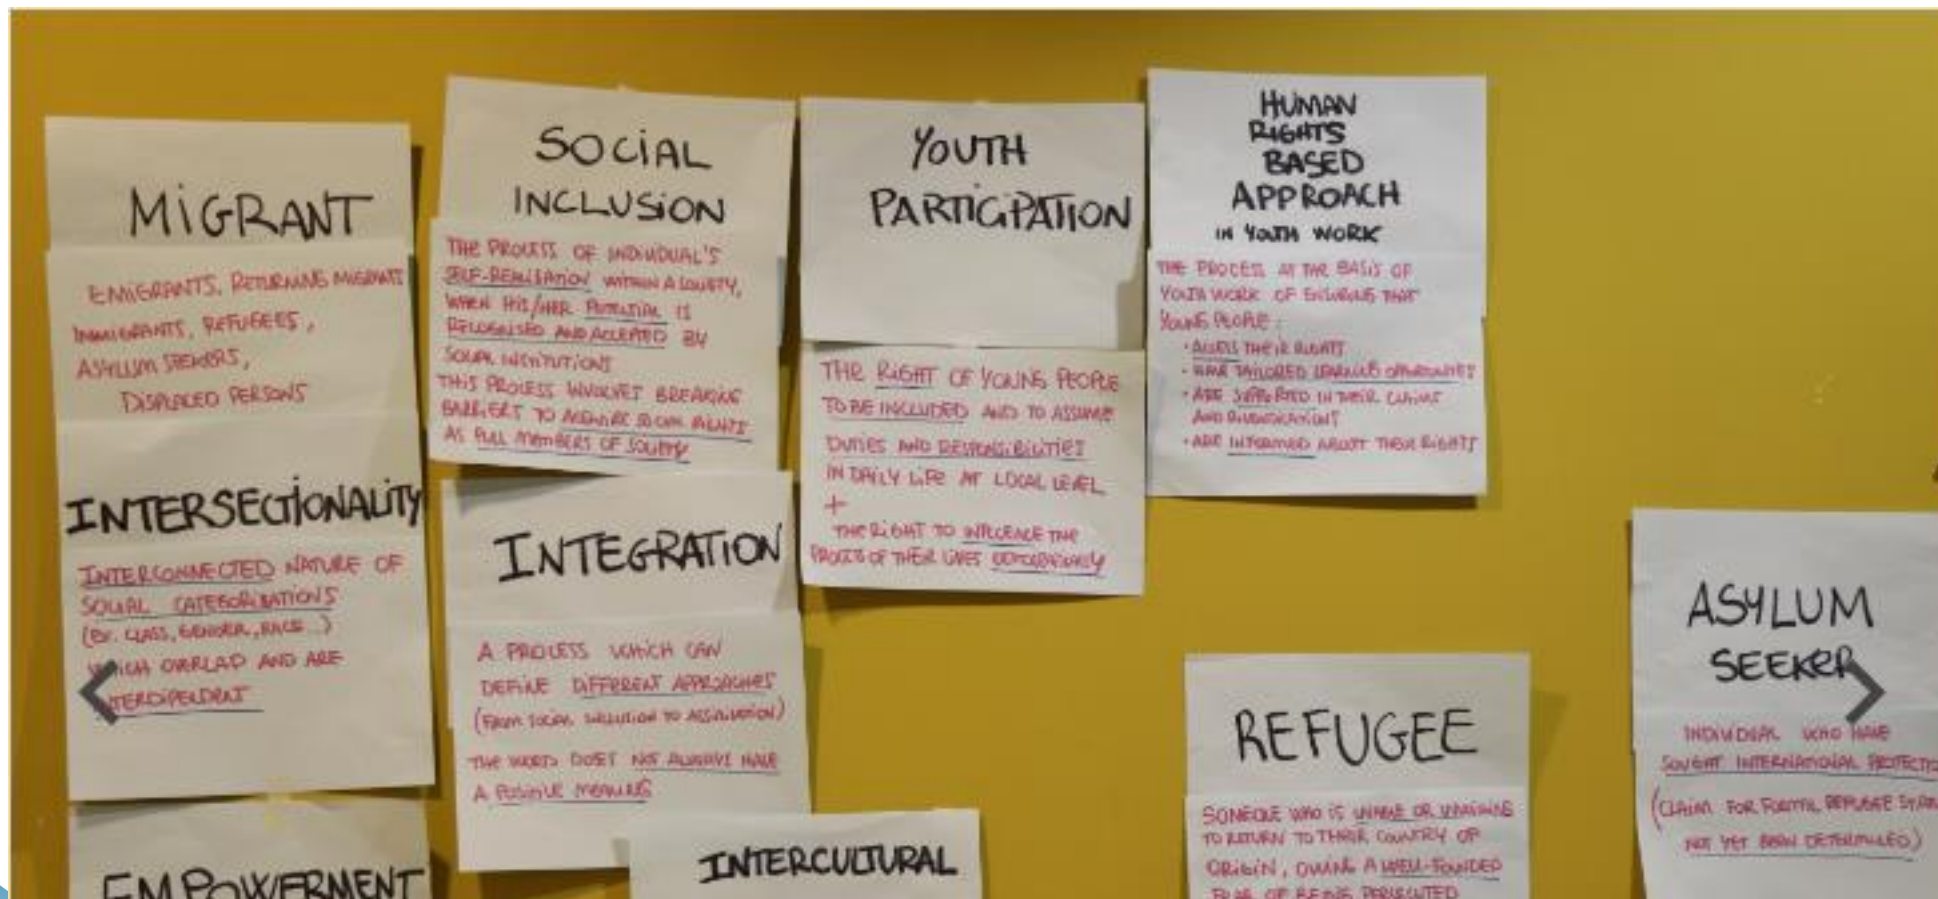 MIGRANT
EMIGRANTS, RETURNING MIGRANTS
INMIGRANTS, REFUGEES,
ASYLUM SEEKERS,
DISPLACED PERSONS
INTERSECTIONALITY
INTERCONNECTED NATURE OF
SOCIAL CATEGORISATIONS
(EX. CLASS, GENDER, RACE...)
WHICH OVERLAP AND ARE
INTERDIPENDENT
EMPOWERMENT
SOCIAL
INCLUSION
THE PROCESS OF INDIVIDUAL'S
SELF-REALISATION WITHIN A SOCIETY,
WHEN HIS/HER POTENTIAL IS
RECOGNISED AND ACCEPTED BY
SOCIAL INSTITUTIONS
THIS PROCESS INVOLVES BREAKING
BARRIERS TO ACQUIRE SOCIAL RIGHTS
AS FULL MEMBERS OF SOCIETY
INTEGRATION
A PROCESS WHICH CAN
DEFINE DIFFERENT APPROACHES
(FROM SOCIAL INCLUSION TO ASSIMILATION)
THE WORD DOES NOT ALWAYS HAVE
A POSITIVE MEANING
INTERCULTURAL
YOUTH
PARTICIPATION
THE RIGHT OF YOUNG PEOPLE
TO BE INCLUDED AND TO ASSUME
DUTIES AND RESPONSIBILITIES
IN DAILY LIFE AT LOCAL LEVEL
+
THE RIGHT TO INFLUENCE THE
OF THEIR LIVES
HUMAN
RIGHTS
BASED
APPROACH
IN YOUTH WORK
THE PROCESS AT THE BASIS OF
YOUTH WORK OF ENSURING THAT
YOUNG PEOPLE:
• ACCESS THEIR RIGHTS
• HAVE TAILORED LEARNING OPPORTUNITIES
• ARE SUPPORTED IN THEIR CLAIMS
AND
• ARE INFORMED ABOUT THEIR RIGHTS
REFUGEE
SOMEONE WHO IS UNABLE OR UNWILLING
TO RETURN TO THEIR COUNTRY OF
ORIGIN, OWING A WELL-FOUNDED
FEAR OF BEING PERSECUTED
ASYLUM
SEEKER
INDIVIDUAL WHO HAVE
SOUGHT INTERNATIONAL PROTECTIO
(CLAIM FOR FORMAL REFUGEE
NOT YET BEEN DETERMINED)